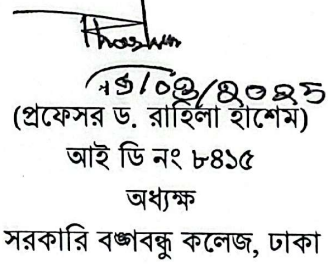 (প্রফেসর ড. রাহিলা হাশেম)
আই ডি নং ৮৪১৫
অধ্যক্ষ
সরকারি বঙ্গবন্ধু কলেজ, ঢাকা